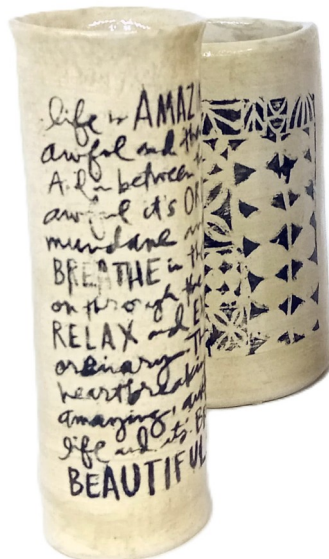 life is AMAZ
awful and th
And in between
awful it's OR
mundane an
BREATHE in th
on through the
RELAX and E
ordinary. Th
heartbreaki
amazing, awf
life and it's B
BEAUTIFUL